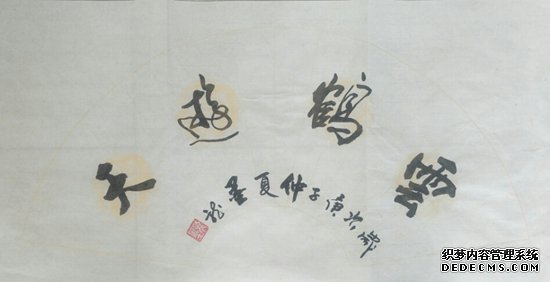 雲鹤遊天
岁次庚子仲夏墨龙
织梦内容管理系统
DEDECMS.COM